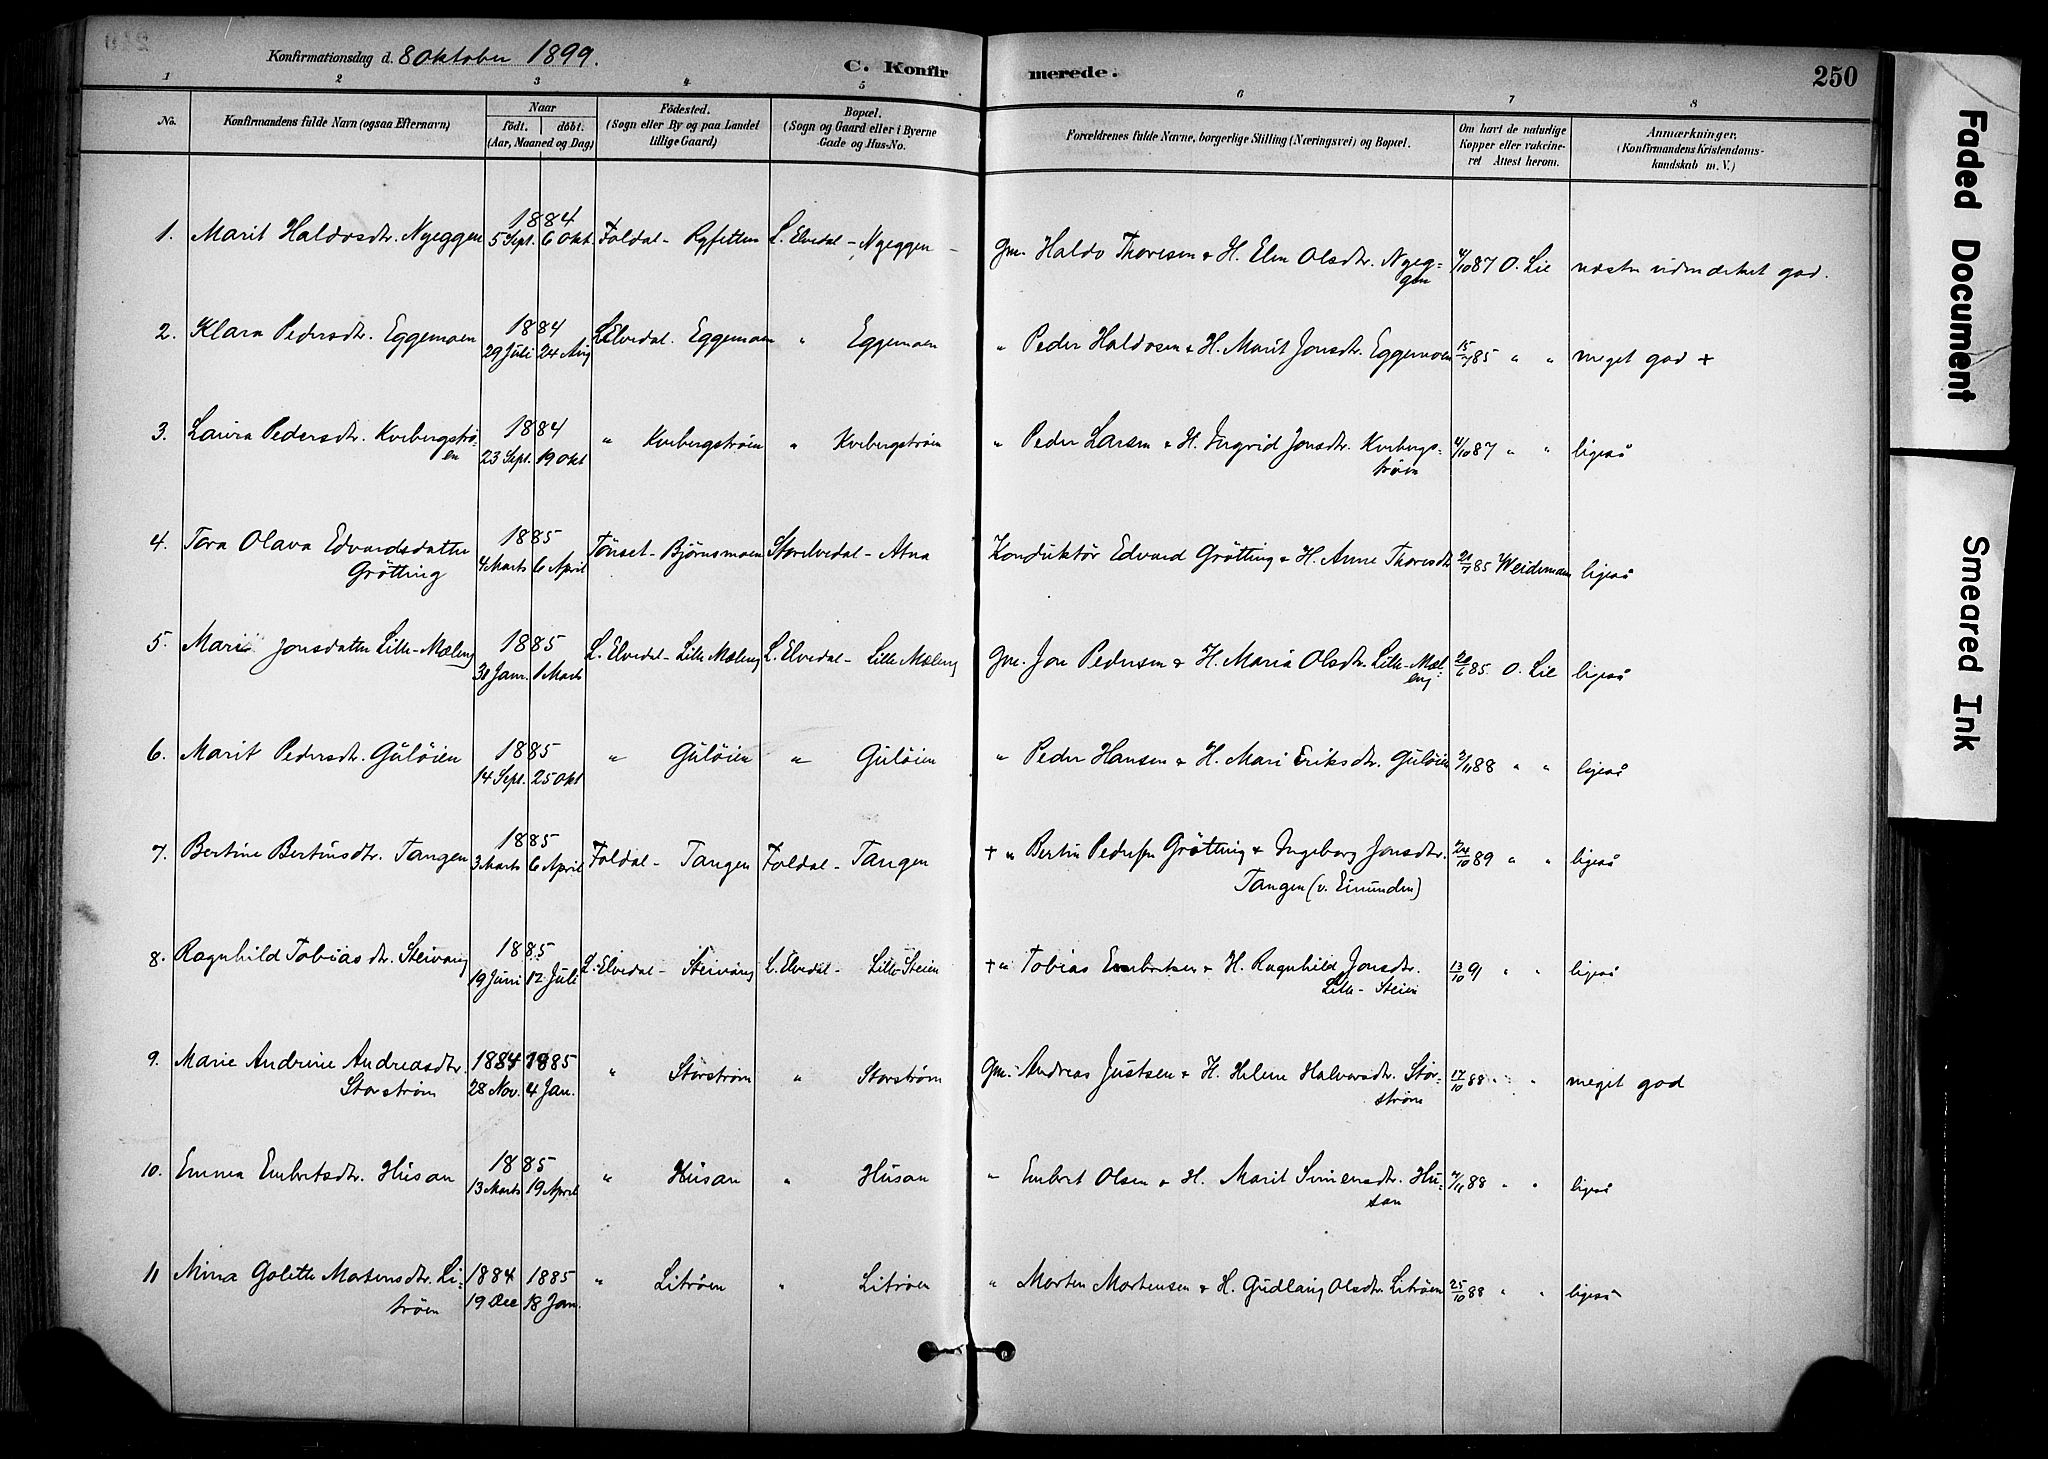 Konfirmationsdag d. 8 Oktober 1899.
C. Konfirmerede.
250
1 2 3 4 5 6 7 8
No.
Konfirmandens fulde Navn (ogsaa Efternavn)
Naar
födt. döbt.
(Aar, Maaned og Dag)
Födested.
(Sogn eller By og paa Landet
tillige Gaard)
Bopæl.
(Sogn og Gaard eller i Byerne
Gade og Hus-No.
Forældrenes fulde Navne, borgerlige Stilling (Næringsvei) og Bopæl.
Om havt de naturlige
Kopper eller vakcine-
ret Attest herom.
Anmærkninger.
(Konfirmandens Kristendoms-
kundskab m. V.)
1. Marit Haldosdtr. Nyeggen 1884 5 Sept. 6 Okt. Foldal - Ryfetten L. Elvedal - Nyeggen - Gm. Haldo Thoresen & H. Elin Olsdtr. Nyeg-
gen 4/10 87 O. Lie næsten udmærket god.
2. Klara Pedersdtr. Eggemoen 1884 29 Juli 24 Aug L. Elvedal. Eggemoen " Eggemoen " Peder Haldosen & H. Marit Jonsdtr. Eggemoen 15/7 85 " " meget god +
3. Laura Pedersdtr. Kvebergstrø-
en 1884 23 Sept. 19 Okt " Kvebergstrøen " Kvebergstrøen " Peder Larsen & H. Ingrid Jonsdtr. Kvebergs-
trøen 4/10 87 " " ligeså
4. Tora Olava Edvardsdatter
Grøtting 1885 4 Marts 6 April Tønset - Bjørnsmoen Storelvedal - Atna Konduktør Edvard Grøtting & H. Anne Thoresdtr 21/7 85 Weidemann ligeså
5. Mari Jonsdatter Lille-Mæleng 1885 31 Jan. 1 Marts L. Elvedal - Lille Mæleng L. Elvedal - Lille Mæleng Gm. Jon Pedersen & H. Maria Olsdtr. Lille-Mæl-
eng 20/6 85. O. Lie ligeså
6. Marit Pedersdtr. Guløien 1885 14 Sept. 25 Okt " Guløien " Guløien " Peder Hansen & H. Mari Eriksdtr. Guløien 2/11 88 " " ligeså
7. Bertine Bertinsdtr. Tangen 1885 3 Marts 6 April Foldal - Tangen Foldal - Tangen + " Bertin Pedersen Grøtting & Ingeborg Jonsdtr.
Tangen (v. Einunden) 24/10 89 " " ligeså
8. Ragnhild Tobiasdtr. Steivang 1885 19 Juni 12 Juli L. Elvedal - Steivang L. Elvedal - Lille Steien + " Tobias Embretsen & H. Ragnhild Jonsdtr.
Lille-Steien 13/10 91 " " ligeså
9. Marie Andrine Andreasdtr.
Storstrøm 1884 1885 28 Nov. 4 Jan. " Storstrøm " Storstrøm Gm. Andreas Justsen & H. Helene Halvorsdtr. Stor-
strøm 17/10 88 " " meget god
10. Emma Embretsdtr. Husan 1885 13 Marts 19 April " Husan " Husan " Embret Olsen & H. Marit Simensdtr. Hu-
san 7/11 88 " " ligeså
11 Mina Golette Mortensdtr. Li-
trøen 1884 1885 19 Dec 18 Jan. " Litrøen " Litrøen " Morten Mortensen & H. Gudlaug Olsdtr. Litrøen 25/10 88 " " ligeså
Faded Document
Smeared Ink